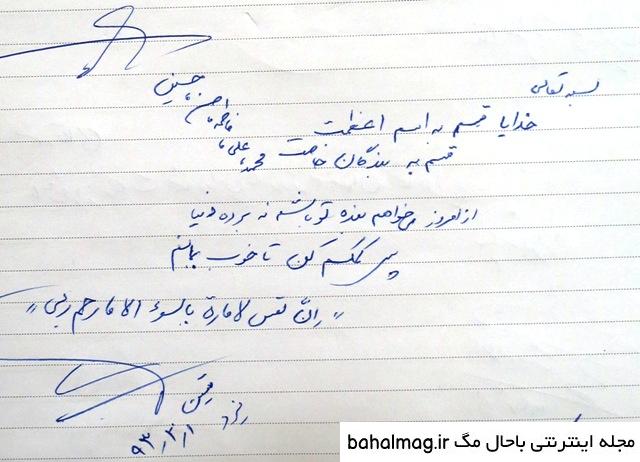 بسمه تعالی
خدایا قسم به اسم اعظمت
قسم به بندگان خاصت محمد، علی، فاطمه، حسن، حسین
از امروز می‌خواهم بنده تو باشم نه برده دنیا
پس کمکم کن تا خوب بمانم
"إنّ نفس لامارة بالسوء الا ما رحم ربی"
۹۳/۳/۱
مجله اینترنتی باحال مگ bahalmag.ir